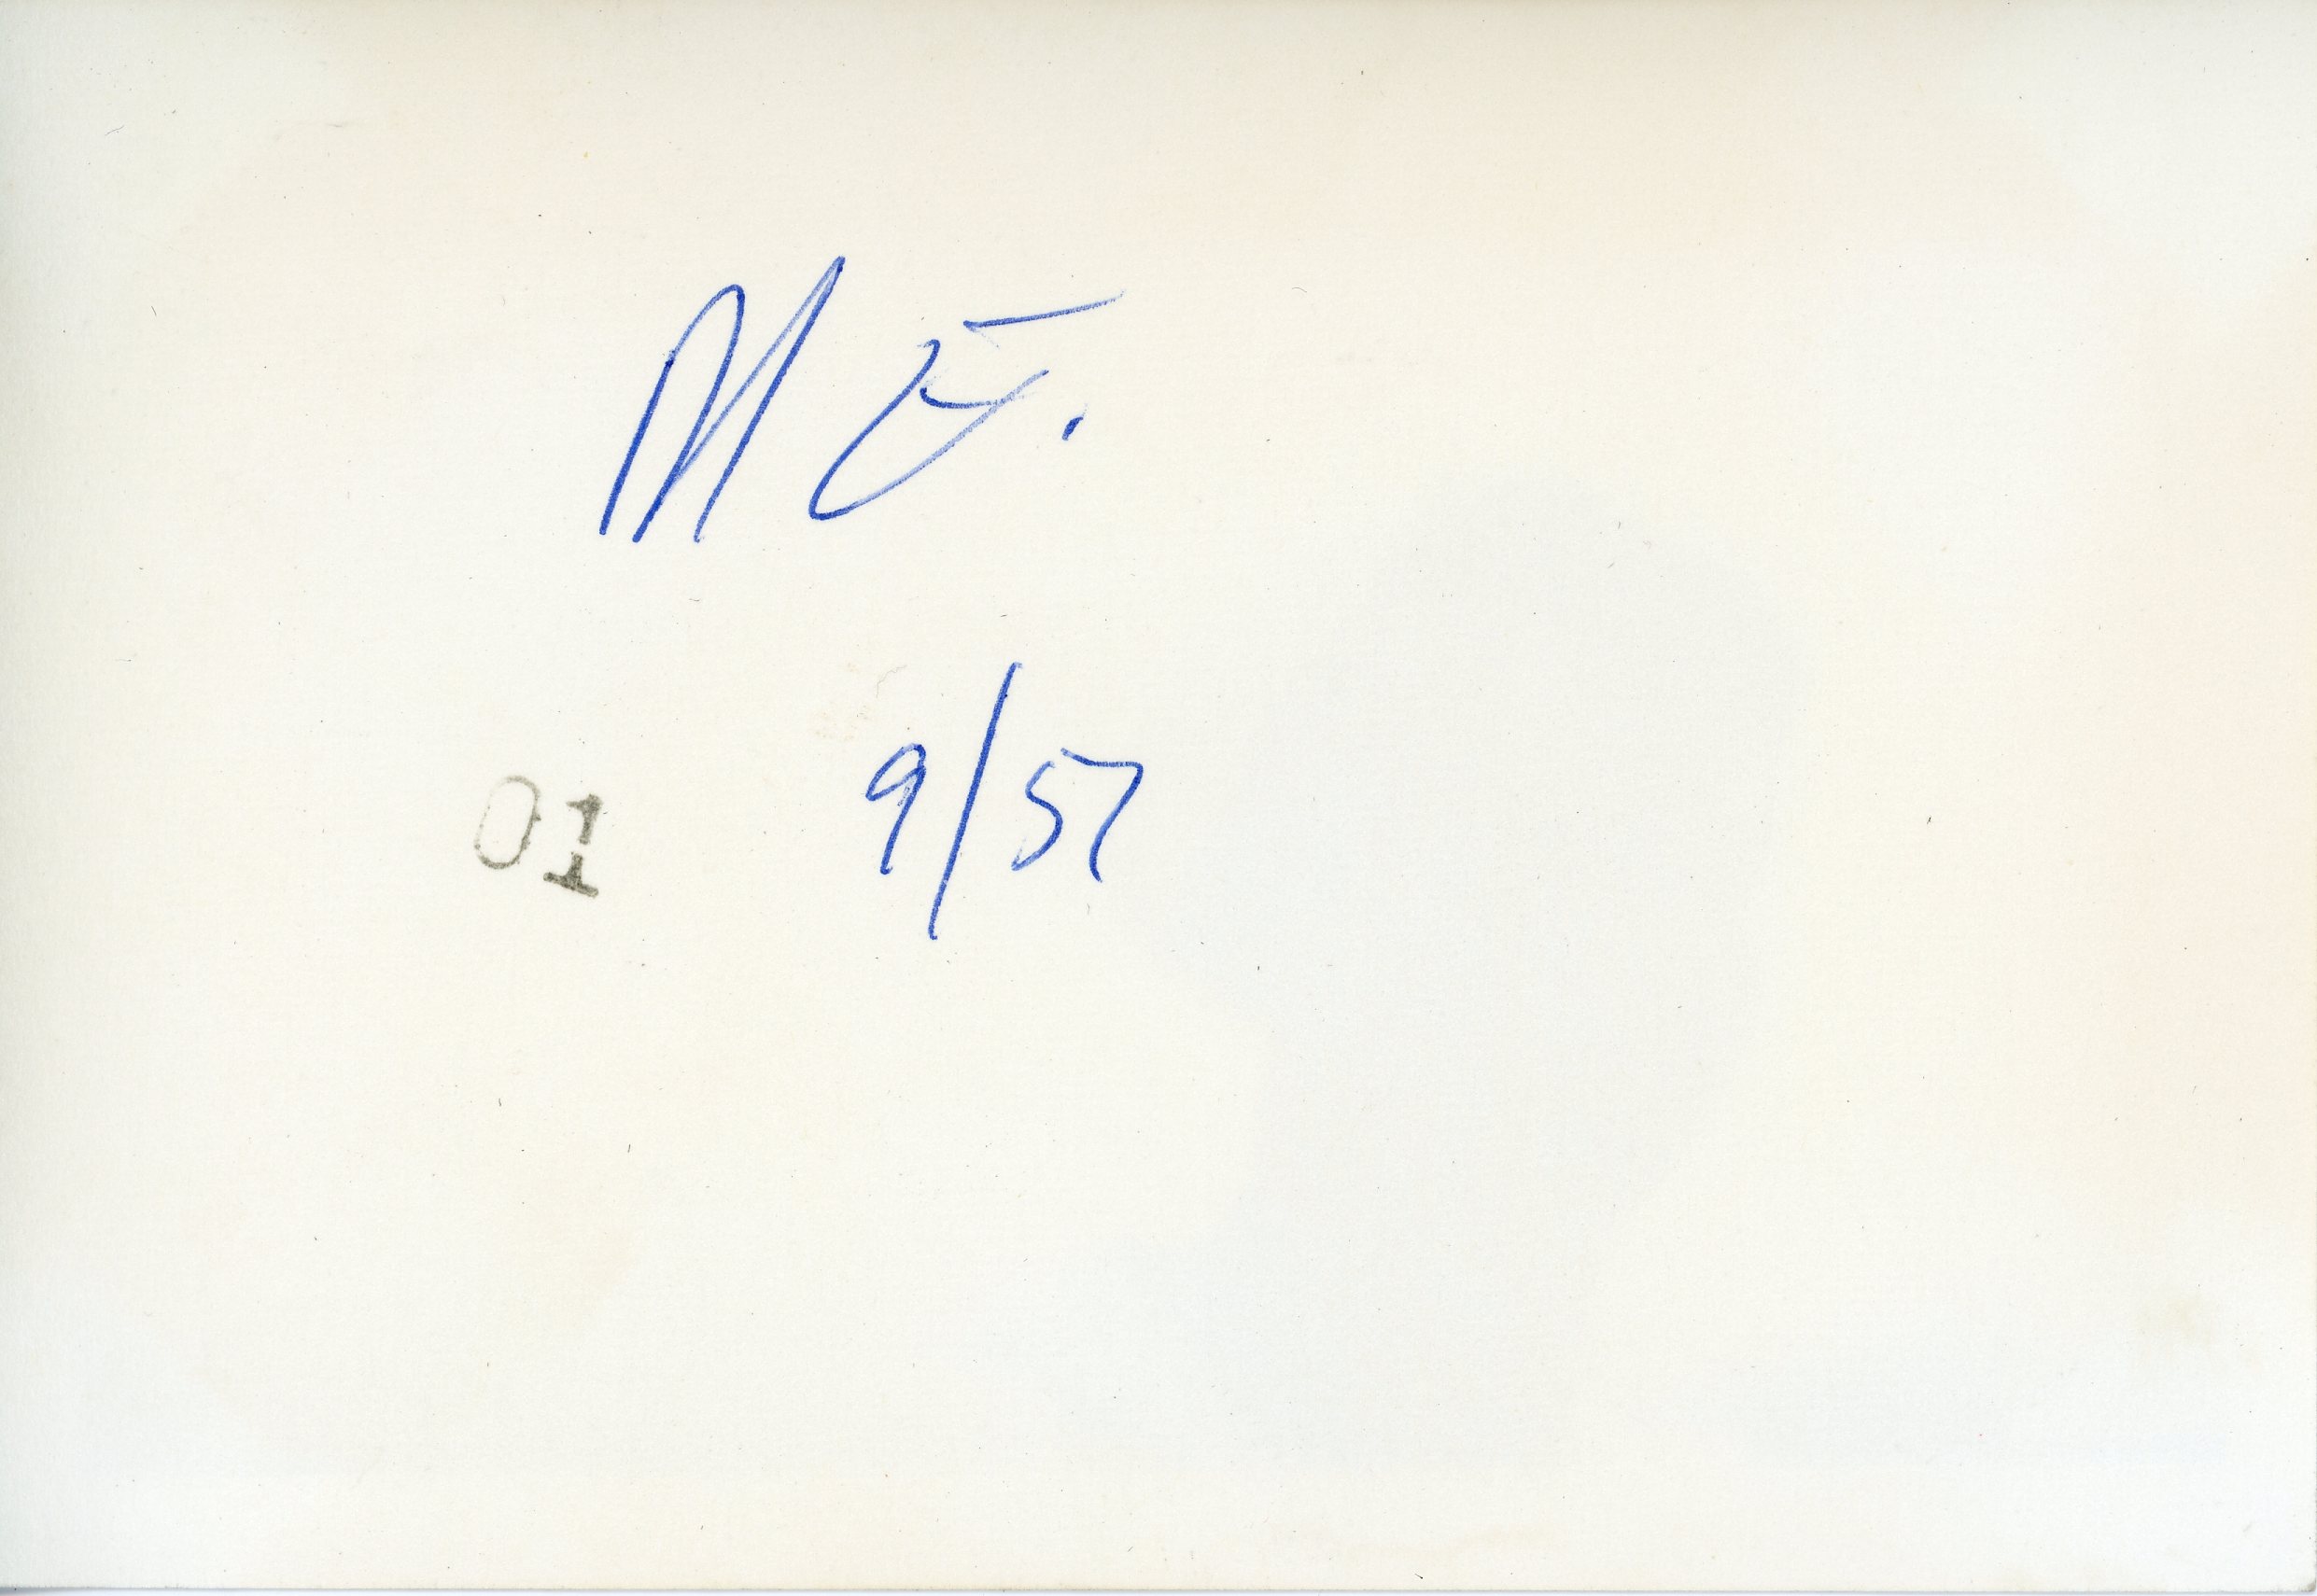 ME.
01 9/57